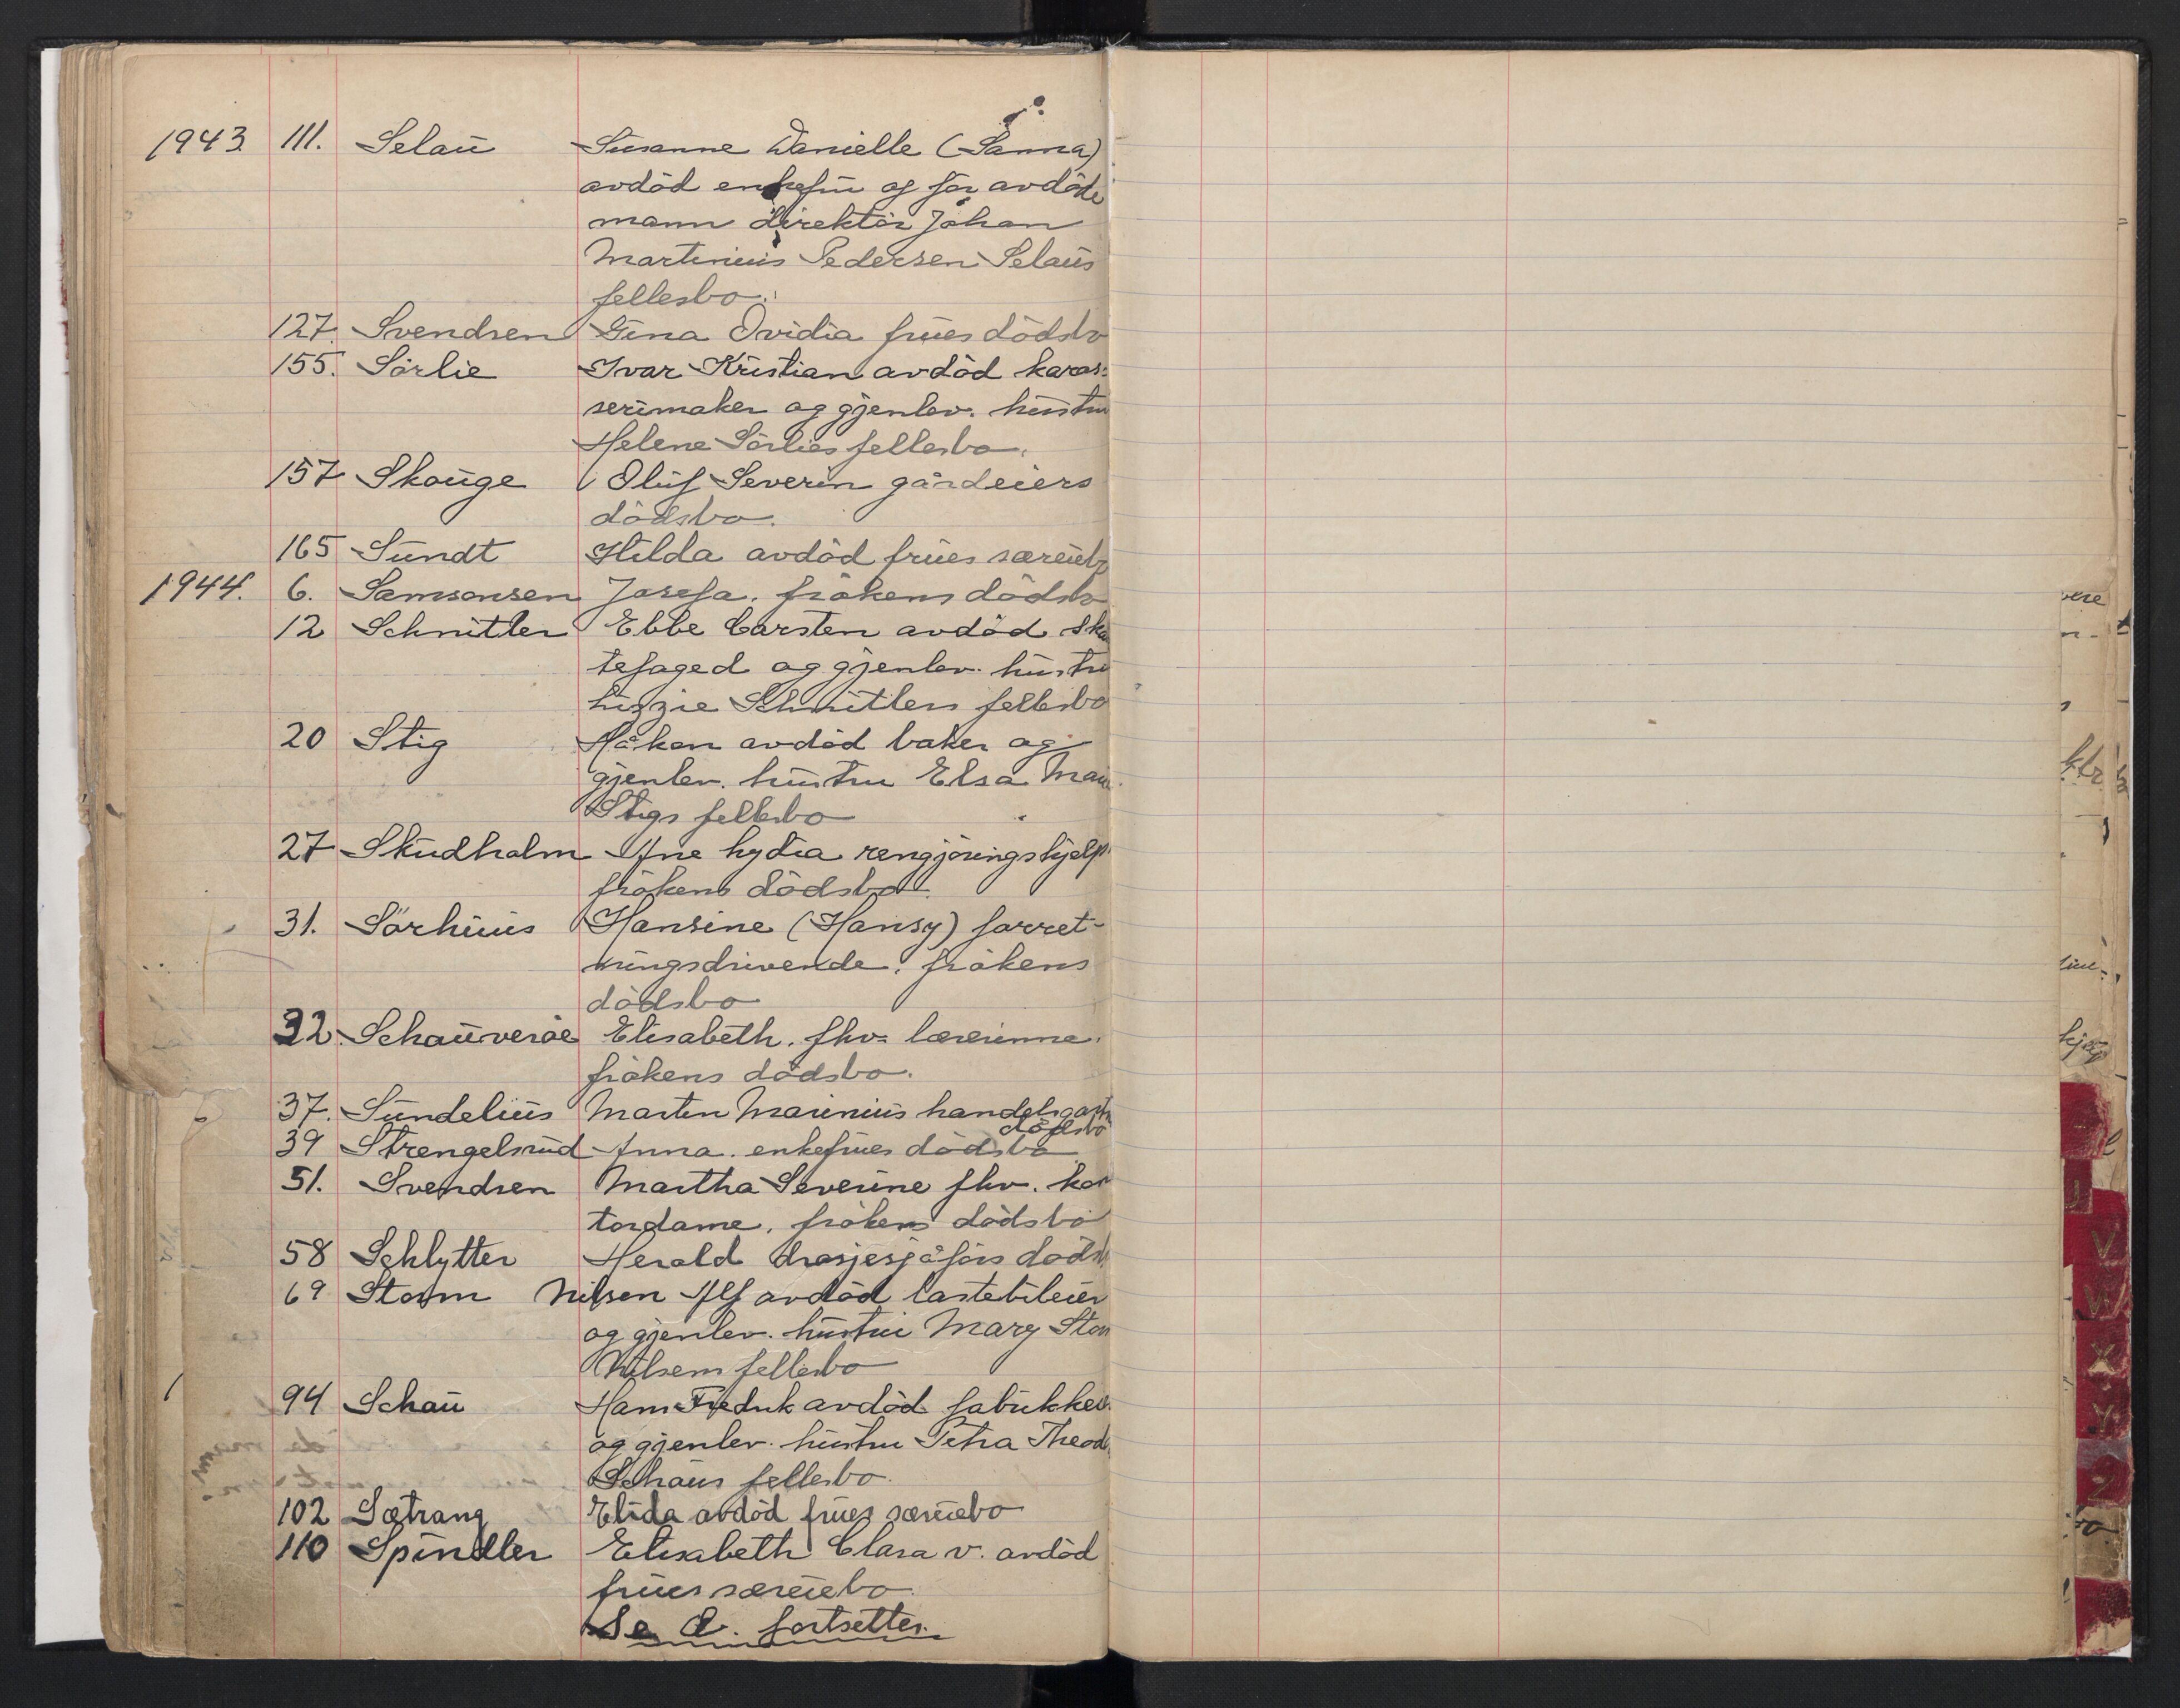 1943 111. Selau Susanne Danielle (Sanna)
avdød enkefru og før avdøde
mann direktør Johan
Martinius Pedersen Selaus
fellesbo.
127. Svendsen Gina Ovidia frues dødsbo
155. Sørlie Ivar Kristian avdød karos-
serimaker og gjenlev. hustru
Helene Sørlies fellesbo.
157 Skauge Oluf Severin gårdeiers
dødsbo.
165 Sundt Hilda avdød frues særeiebo
1944. 6. Samsonsen Josefa. frøkens dødsbo
12 Schnitler Ebbe Carsten avdød ska
tefoged og gjenlev. hustru
Lizzie Schnitlers fellesbo
20 Stig Håkon avdød baker og
gjenlev. hustru Elsa
Stigs fellesbo
27 Skudholm Ane Lydia rengjøringshjelp
frøkens dødsbo.
31. Sørhuus Hansine (Hansy) forret-
ningsdrivende. frøkens
dødsbo
32. Schauveröe Elisabeth. fhv. lærerinne.
frøkens dødsbo.
37. Sundelius Marten Marenius handelsgart
dødsbo
39 Strengelsrud Anna. enkefrues dødsbo
51. Svendsen Martha Severine fhv. kon
tordame. frøkens dødsbo
58 Schlytter Herald drosjesjåførs døds
69 Storm Nilsen Alf avdød lastebileier
og gjenlev. hustru Mary Stor
Nilsens fellesbo
94 Schau Hans Fredrik avdød fabrikkei
og gjenlev. hustru Petra Theod
Schaus fellesbo.
102 Sætrang Elida avdød frues særeiebo
110 Spindler Elisabeth Clara v. avdød
frues særeiebo
Se fortsetter.